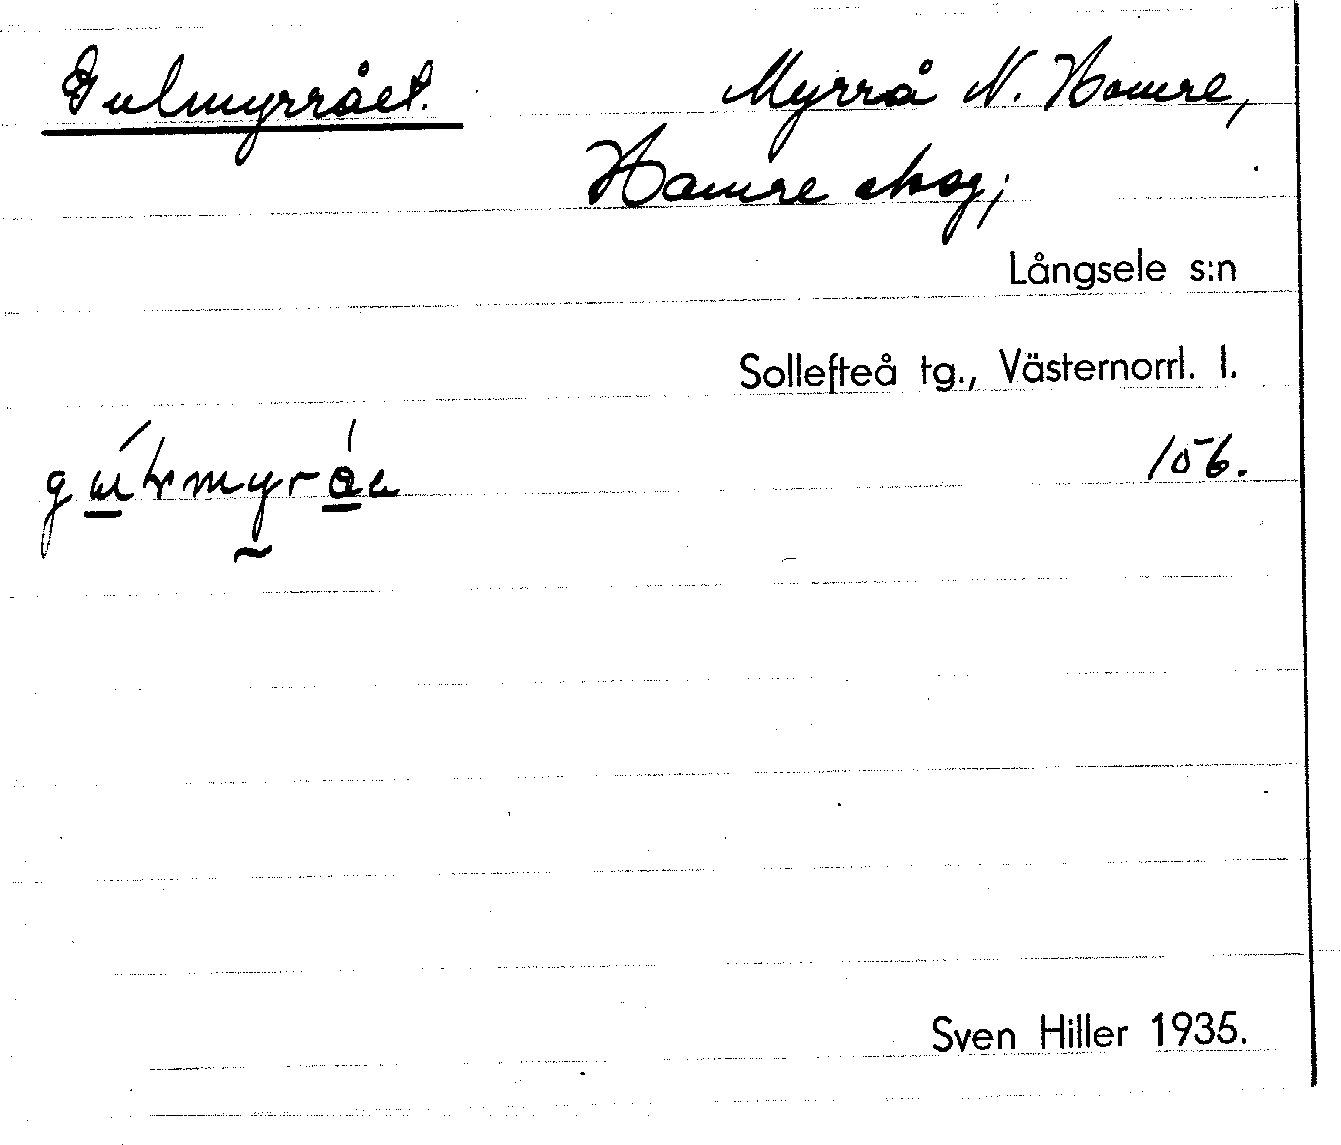 Gulmyrrået.
Myrrå N. Hamre,
Hamre skog;
Långsele s:n
Sollefteå tg., Västernorrl. l.
156.
Sven Hiller 1935.